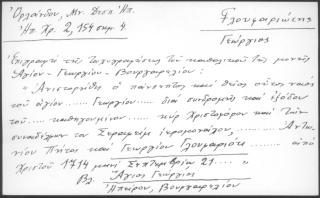 Ὀρλάνδου, Μν. Δεσπ. Ἠπ.
Ἠπ. Χρ. 2, 154 σημ. 4.
Γλουμαριώτης
Γεώργιος
Ἐπιγραφή τῆς τοιχογραφήσεως τοῦ καθολικοῦ τῆς μονῆς
Ἁγίου - Γεωργίου - Βουργαρελίου:
"Ἀνιστορήθη ὁ πάνσεπτος καὶ θεῖος οὗτος ναός
τοῦ ἁγίου..... Γεωργίου..... διά συνδρομῆς καὶ ἐξόδου
τοῦ..... καθηγουμένου κύρ Χριστοφόρου καὶ τῶν
συναδέλφων του Σεραφείμ ἱερομονάχου,..... Ἀντω-
νίου Πήτος καὶ Γεωργίου Γλουμαριότι ..... ἀπό
Χριστοῦ 1714 μηνί Σεπτεμβρίῳ 21.... "
Βλ. Ἅγιος Γεώργιος
Ἠπείρου, Βουργαρελίου